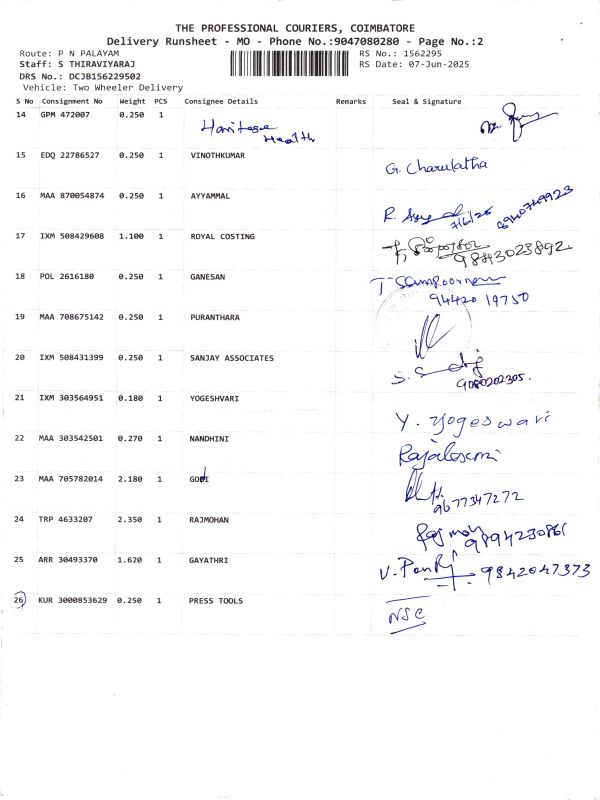 THE PROFESSIONAL COURIERS, COIMBATORE
Delivery Runsheet - MO - Phone No.:9047080280 - Page No.:2
Route: P N PALAYAM RS No.: 1562295
Staff: S THIRAVIYARAJ RS Date: 07-Jun-2025
DRS No.: DCJB156229502
Vehicle: Two Wheeler Delivery
S No Consignment No Weight PCS Consignee Details Remarks Seal & Signature
14 GPM 472007 0.250 1
Health
15 EDQ 22786527 0.250 1 VINOTHKUMAR G. Charulatha
16 MAA 870054874 0.250 1 AYYAMMAL R.
17 IXM 508429608 1.100 1 ROYAL COSTING
9843023892
18 POL 2616180 0.250 1 GANESAN T Sampoornam
94420 19750
19 MAA 708675142 0.250 1 PURANTHARA
20 IXM 508431399 0.250 1 SANJAY ASSOCIATES S. S
9080202305.
21 IXM 303564951 0.180 1 YOGESHVARI Y. Yogeswari
22 MAA 303542501 0.270 1 NANDHINI
23 MAA 705782014 2.180 1 GOPI
9677347272
24 TRP 4633207 2.350 1 RAJMOHAN Raj moh
9894230861
25 ARR 30493370 1.620 1 GAYATHRI 9842047373
26 KUR 3000853629 0.250 1 PRESS TOOLS NSC